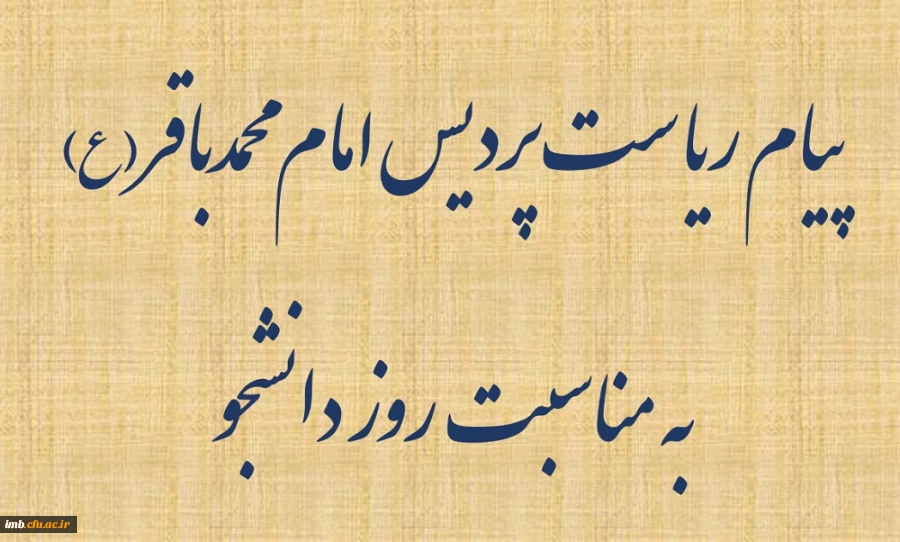 پیام ریاست پردیس امام محمدباقر(ع)
به مناسبت روز دانشجو
imb.cfu.ac.ir